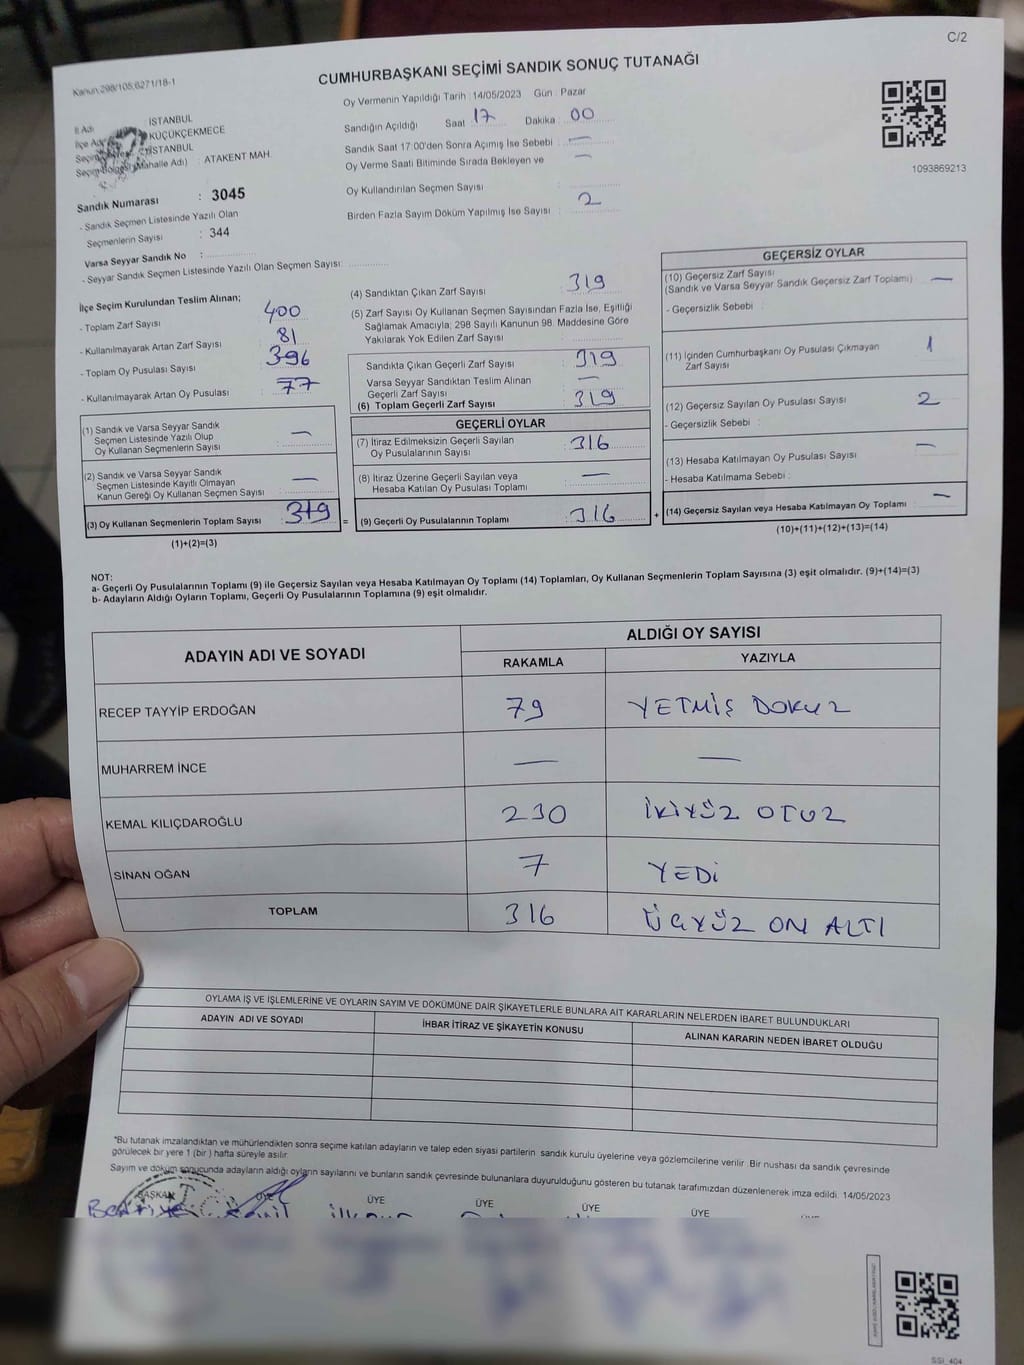 C/2
Kanun:298/105;6271/18-1
CUMHURBAŞKANI SEÇİMİ SANDIK SONUÇ TUTANAĞI
1093869213
İl Adı : İSTANBUL
İlçe Adı : KÜÇÜKÇEKMECE
İSTANBUL
(Mahalle Adı) : ATAKENT MAH.
Sandık Numarası : 3045
- Sandık Seçmen Listesinde Yazılı Olan
Seçmenlerin Sayısı : 344
Varsa Seyyar Sandık No :
- Seyyar Sandık Seçmen Listesinde Yazılı Olan Seçmen Sayısı:
Oy Vermenin Yapıldığı Tarih : 14/05/2023 Gün : Pazar
Sandığın Açıldığı Saat 17 Dakika 00
Sandık Saat 17:00'den Sonra Açımış İse Sebebi : —
Oy Verme Saati Bitiminde Sırada Bekleyen ve —
Oy Kullandırılan Seçmen Sayısı :
Birden Fazla Sayım Döküm Yapılmış İse Sayısı : 2
İlçe Seçim Kurulundan Teslim Alınan;
- Toplam Zarf Sayısı : 400
- Kullanılmayarak Artan Zarf Sayısı : 81
- Toplam Oy Pusulası Sayısı : 396
- Kullanılmayarak Artan Oy Pusulası : 77
(1) Sandık ve Varsa Seyyar Sandık
Seçmen Listesinde Yazılı Olup
Oy Kullanan Seçmenlerin Sayısı : —
(2) Sandık ve Varsa Seyyar Sandık
Seçmen Listesinde Kayıtlı Olmayan
Kanun Gereği Oy Kullanan Seçmen Sayısı : —
(3) Oy Kullanan Seçmenlerin Toplam Sayısı : 319 =
(1)+(2)=(3)
(4) Sandıktan Çıkan Zarf Sayısı : 319
(5) Zarf Sayısı Oy Kullanan Seçmen Sayısından Fazla İse, Eşitliği
Sağlamak Amacıyla; 298 Sayılı Kanunun 98. Maddesine Göre
Yakılarak Yok Edilen Zarf Sayısı :
Sandıkta Çıkan Geçerli Zarf Sayısı : 319
Varsa Seyyar Sandıktan Teslim Alınan
Geçerli Zarf Sayısı : —
(6) Toplam Geçerli Zarf Sayısı : 319
GEÇERLİ OYLAR
(7) İtiraz Edilmeksizin Geçerli Sayılan
Oy Pusulalarının Sayısı : 316
(8) İtiraz Üzerine Geçerli Sayılan veya
Hesaba Katılan Oy Pusulası Toplamı : —
(9) Geçerli Oy Pusulalarının Toplamı : 316 +
GEÇERSİZ OYLAR
(10) Geçersiz Zarf Sayısı :
(Sandık ve Varsa Seyyar Sandık Geçersiz Zarf Toplamı) —
- Geçersizlik Sebebi :
(11) İçinden Cumhurbaşkanı Oy Pusulası Çıkmayan
Zarf Sayısı : 1
(12) Geçersiz Sayılan Oy Pusulası Sayısı : 2
- Geçersizlik Sebebi :
(13) Hesaba Katılmayan Oy Pusulası Sayısı : —
- Hesaba Katılmama Sebebi :
(14) Geçersiz Sayılan veya Hesaba Katılmayan Oy Toplamı : —
(10)+(11)+(12)+(13)=(14)
NOT:
a- Geçerli Oy Pusulalarının Toplamı (9) ile Geçersiz Sayılan veya Hesaba Katılmayan Oy Toplamı (14) Toplamları, Oy Kullanan Seçmenlerin Toplam Sayısına (3) eşit olmalıdır. (9)+(14)=(3)
b- Adayların Aldığı Oyların Toplamı, Geçerli Oy Pusulalarının Toplamına (9) eşit olmalıdır.
ADAYIN ADI VE SOYADI
ALDIĞI OY SAYISI
RAKAMLA YAZIYLA
RECEP TAYYİP ERDOĞAN 79 YETMİŞ DOKUZ
MUHARREM İNCE — —
KEMAL KILIÇDAROĞLU 230 İKİYÜZ OTUZ
SİNAN OĞAN 7 YEDİ
TOPLAM 316 ÜÇYÜZ ON ALTI
OYLAMA İŞ VE İŞLEMLERİNE VE OYLARIN SAYIM VE DÖKÜMÜNE DAİR ŞİKAYETLERLE BUNLARA AİT KARARLARIN NELERDEN İBARET BULUNDUKLARI
ADAYIN ADI VE SOYADI İHBAR İTİRAZ VE ŞİKAYETİN KONUSU ALINAN KARARIN NEDEN İBARET OLDUĞU
*Bu tutanak imzalandıktan ve mühürlendikten sonra seçime katılan adayların ve talep eden siyasi partilerin sandık kurulu üyelerine veya gözlemcilerine verilir. Bir nushası da sandık çevresinde
görülecek bir yere 1 (bir ) hafta süreyle asılır.
Sayım ve döküm sonucunda adayların aldığı oyların sayılarını ve bunların sandık çevresinde bulunanlara duyurulduğunu gösteren bu tutanak tarafımızdan düzenlenerek imza edildi. 14/05/2023
BAŞKAN ÜYE ÜYE ÜYE ÜYE ÜYE
SSI 404